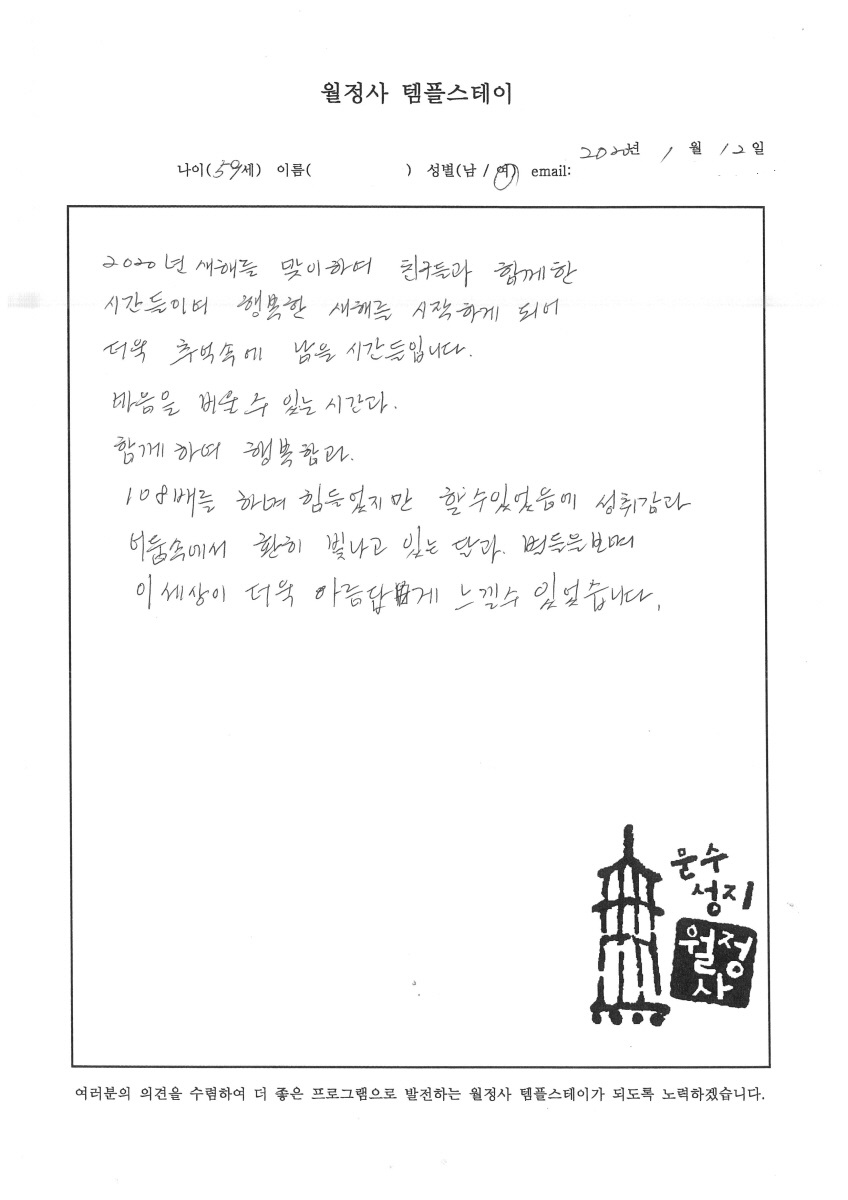 월정사 템플스테이
2020년 1월 12일
나이(59세) 이름( ) 성별(남 / 여) email:
2020년 새해를 맞이하여 친구들과 함께한
시간들이며 행복한 새해를 시작하게 되어
더욱 추억속에 남을 시간들입니다.
마음을 비울 수 있는 시간과.
함께하여 행복함과.
108배를 하며 힘들었지만 할수있었음에 성취감과
어둠속에서 환히 빛나고 있는 달과. 별들을보며
이 세상이 더욱 아름답게 느낄수 있었습니다.
문수
성지
월정
사
여러분의 의견을 수렴하여 더 좋은 프로그램으로 발전하는 월정사 템플스테이가 되도록 노력하겠습니다.